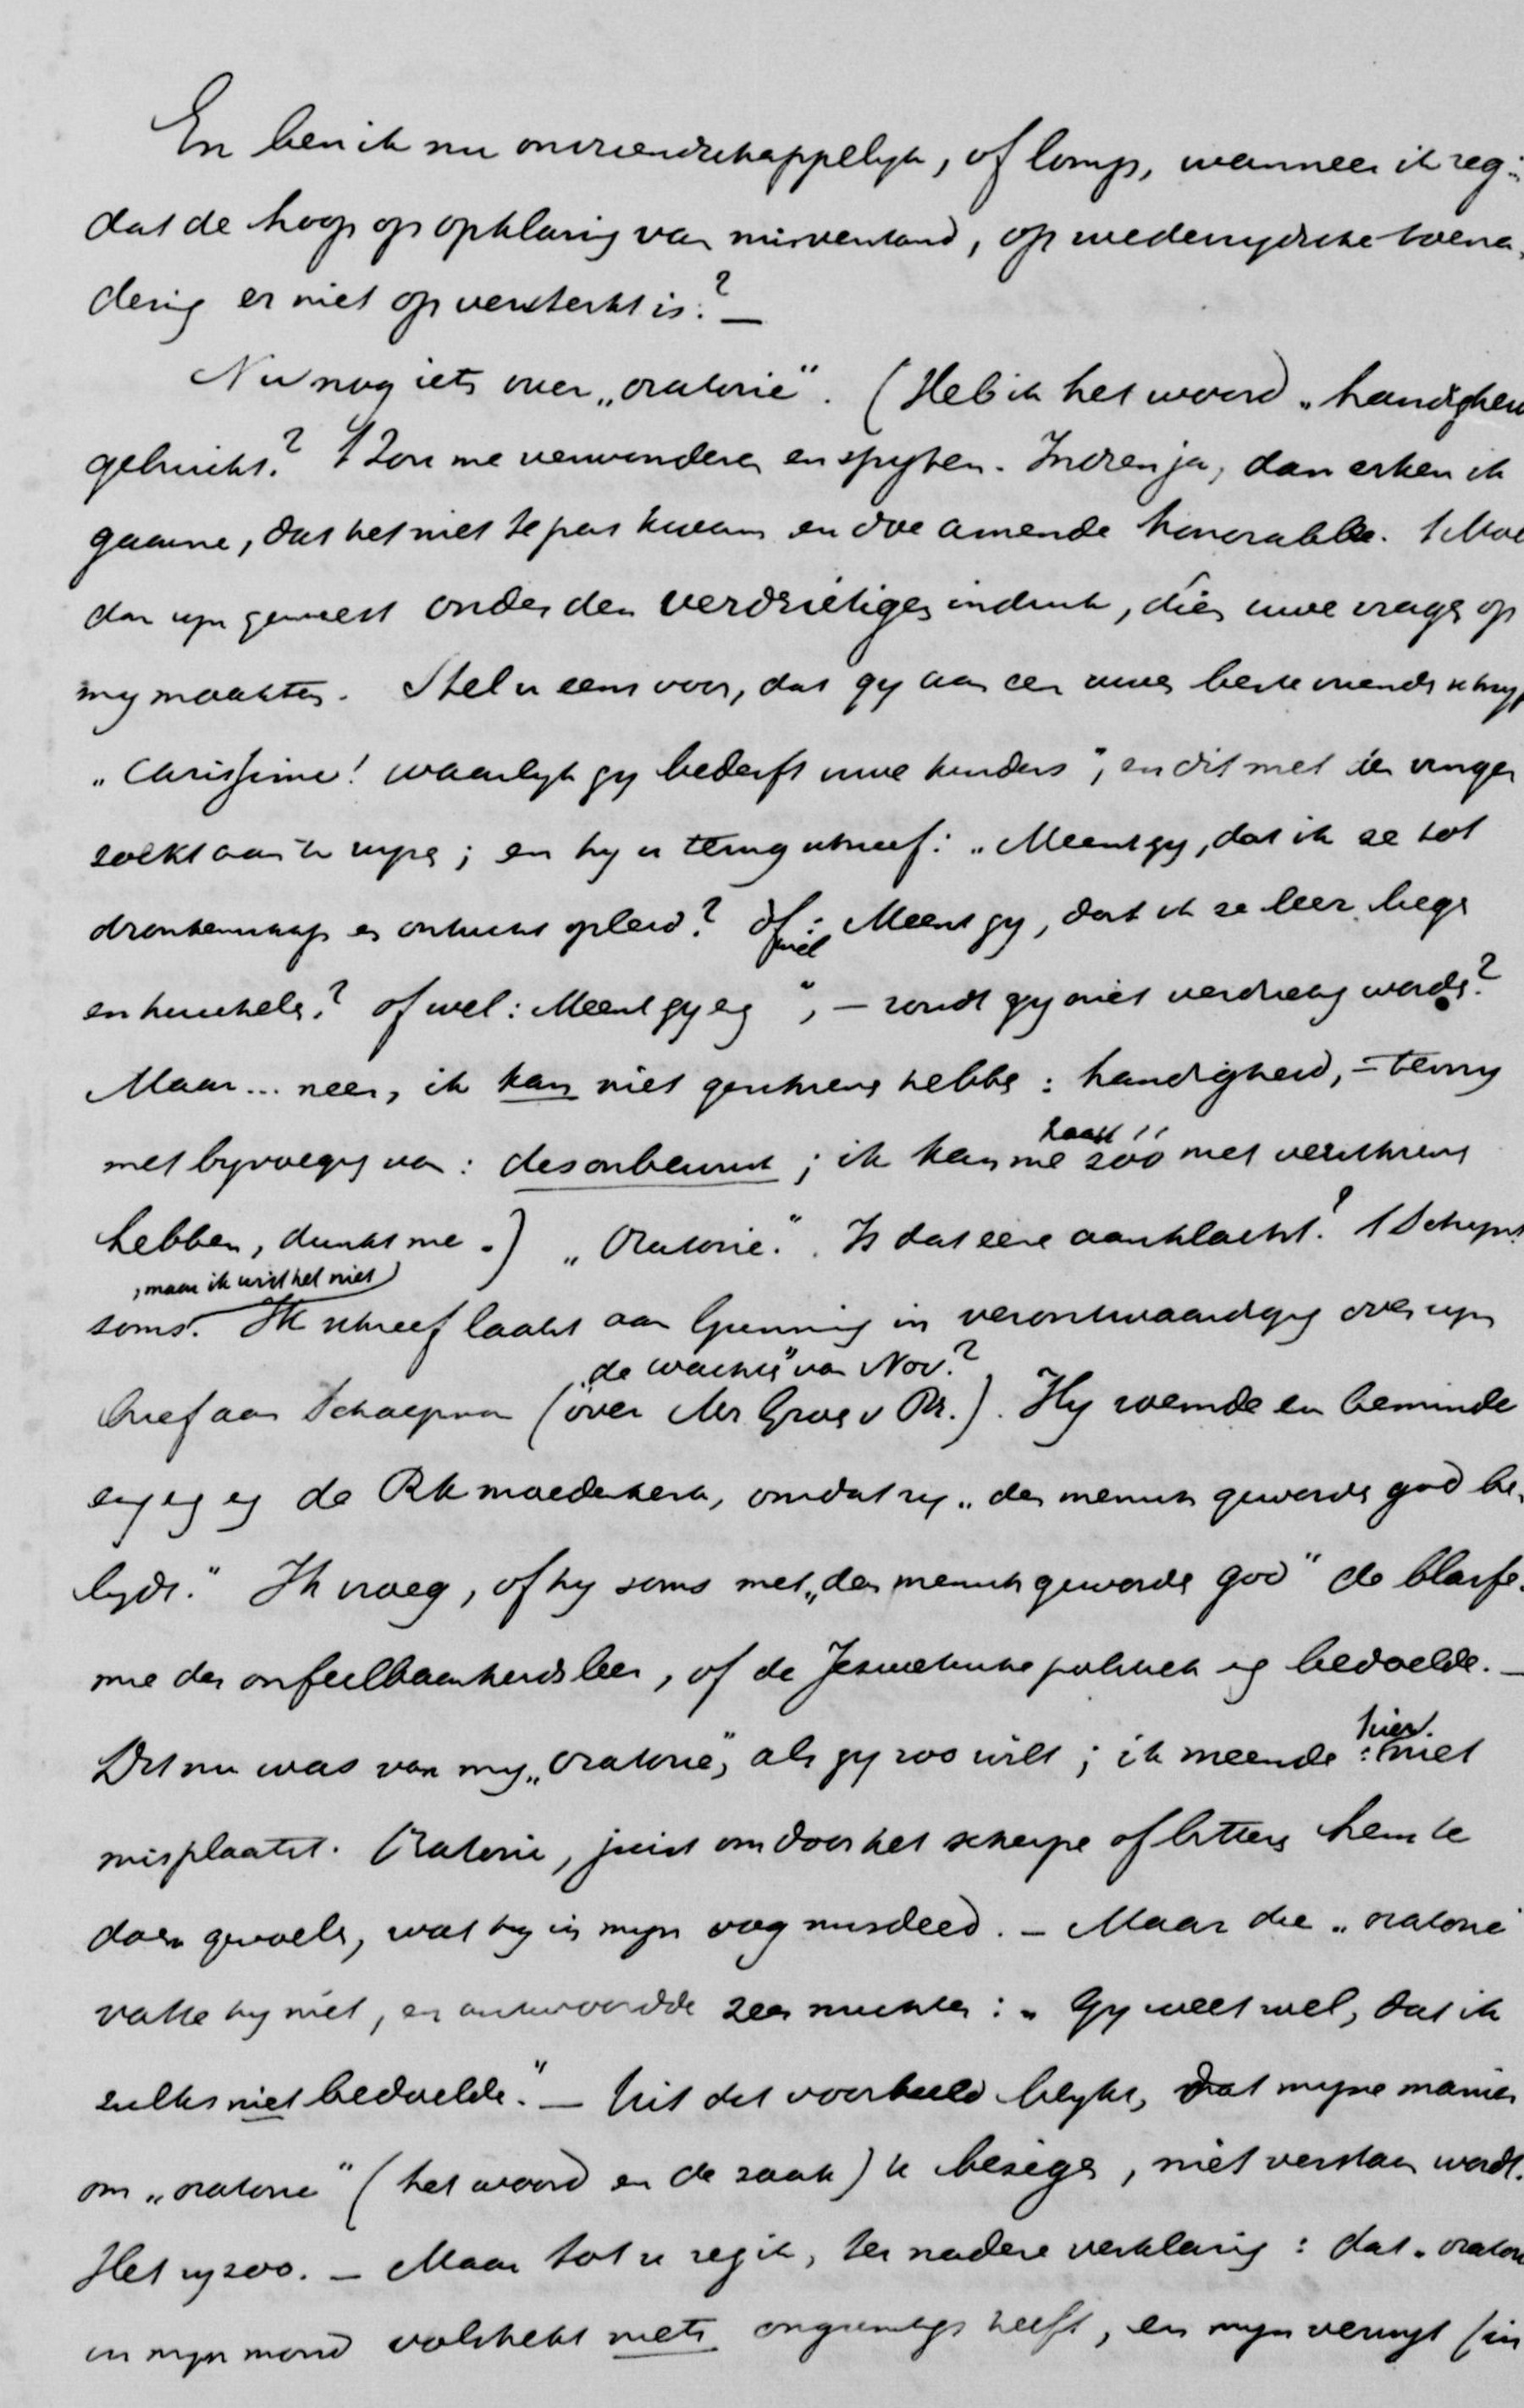 En ben ik nu onvriendschappelyk, of lomp, wanneer ik zeg:
dat de hoop op opklaring van misverstand, op wederzydsche toena-
dering er niet op versterkt is? —
Nu nog iets over „oratorie". (Heb ik het woord „handigheid
gebruikt? 't Zou me verwonderen en spyten. Indien ja, dan erken ik
gaarne, dat het niet te pas kwam en doe amende honorable. 't Moet
dan zyn geweest onder den verdrietigen indruk, dien uwe vragen op
my maakten. Stel u eens voor, dat gy aan een uwer beste vrienden schryft
„Carissime! waarlyk gy bederft uwe kinders", en dit met den vinger
zoekt aan te wyzen; en hy u terug schreef: „Meent gy, dat ik ze tot
dronkenschap en ontucht opleid? Of wel: Meent gy, dat ik ze leer liegen
en huichelen? of wel: Meent gy enz", — zoudt gy niet verdrietig worden?
Maar... neen, ik kan niet geschreven hebben: handigheid, – tenzy
met byvoeging van: desonbewust; ik kan me haast!! zóó niet verschreven
hebben, dunkt me.) „Oratorie". Is dat eene aanklacht? 't Schynt
soms, maar ik wist het niet. Ik schreef laatst aan Gunning in verontwaardiging over zyn
brief aan Schaepman („de wachter" van Nov.? over Mr Groen v Pr.). Hy roemde en beminde
enz enz de RK moederkerk, omdat zy „den mensch geworden god be-
lydt." Ik vroeg, of hy soms met „den mensch geworden god" de blasfe-
mie der onfeilbaarheidsleer, of de Jesuitische politiek enz bedoelde. —
Dit nu was van my „oratorie", als gy zoo wilt; ik meende: hier niet
misplaatst. Oratorie, juist om door het scherpe of bittere hem te
doen gevoelen, wat hy in myn oog misdeed. – Maar die „oratorie"
vatte hy niet, en antwoordde zeer nuchter: „Gy weet wel, dat ik
zulks niet bedoelde." — Uit dit voorbeeld blykt, dat myne manier
om „oratorie" (het woord en de zaak) te bezigen, niet verstaan wordt.
Het zy zoo. – Maar tot u zeg ik, ter nadere verklaring: dat „oratorie
in myn mond volstrekt niets heeft, en myn (in